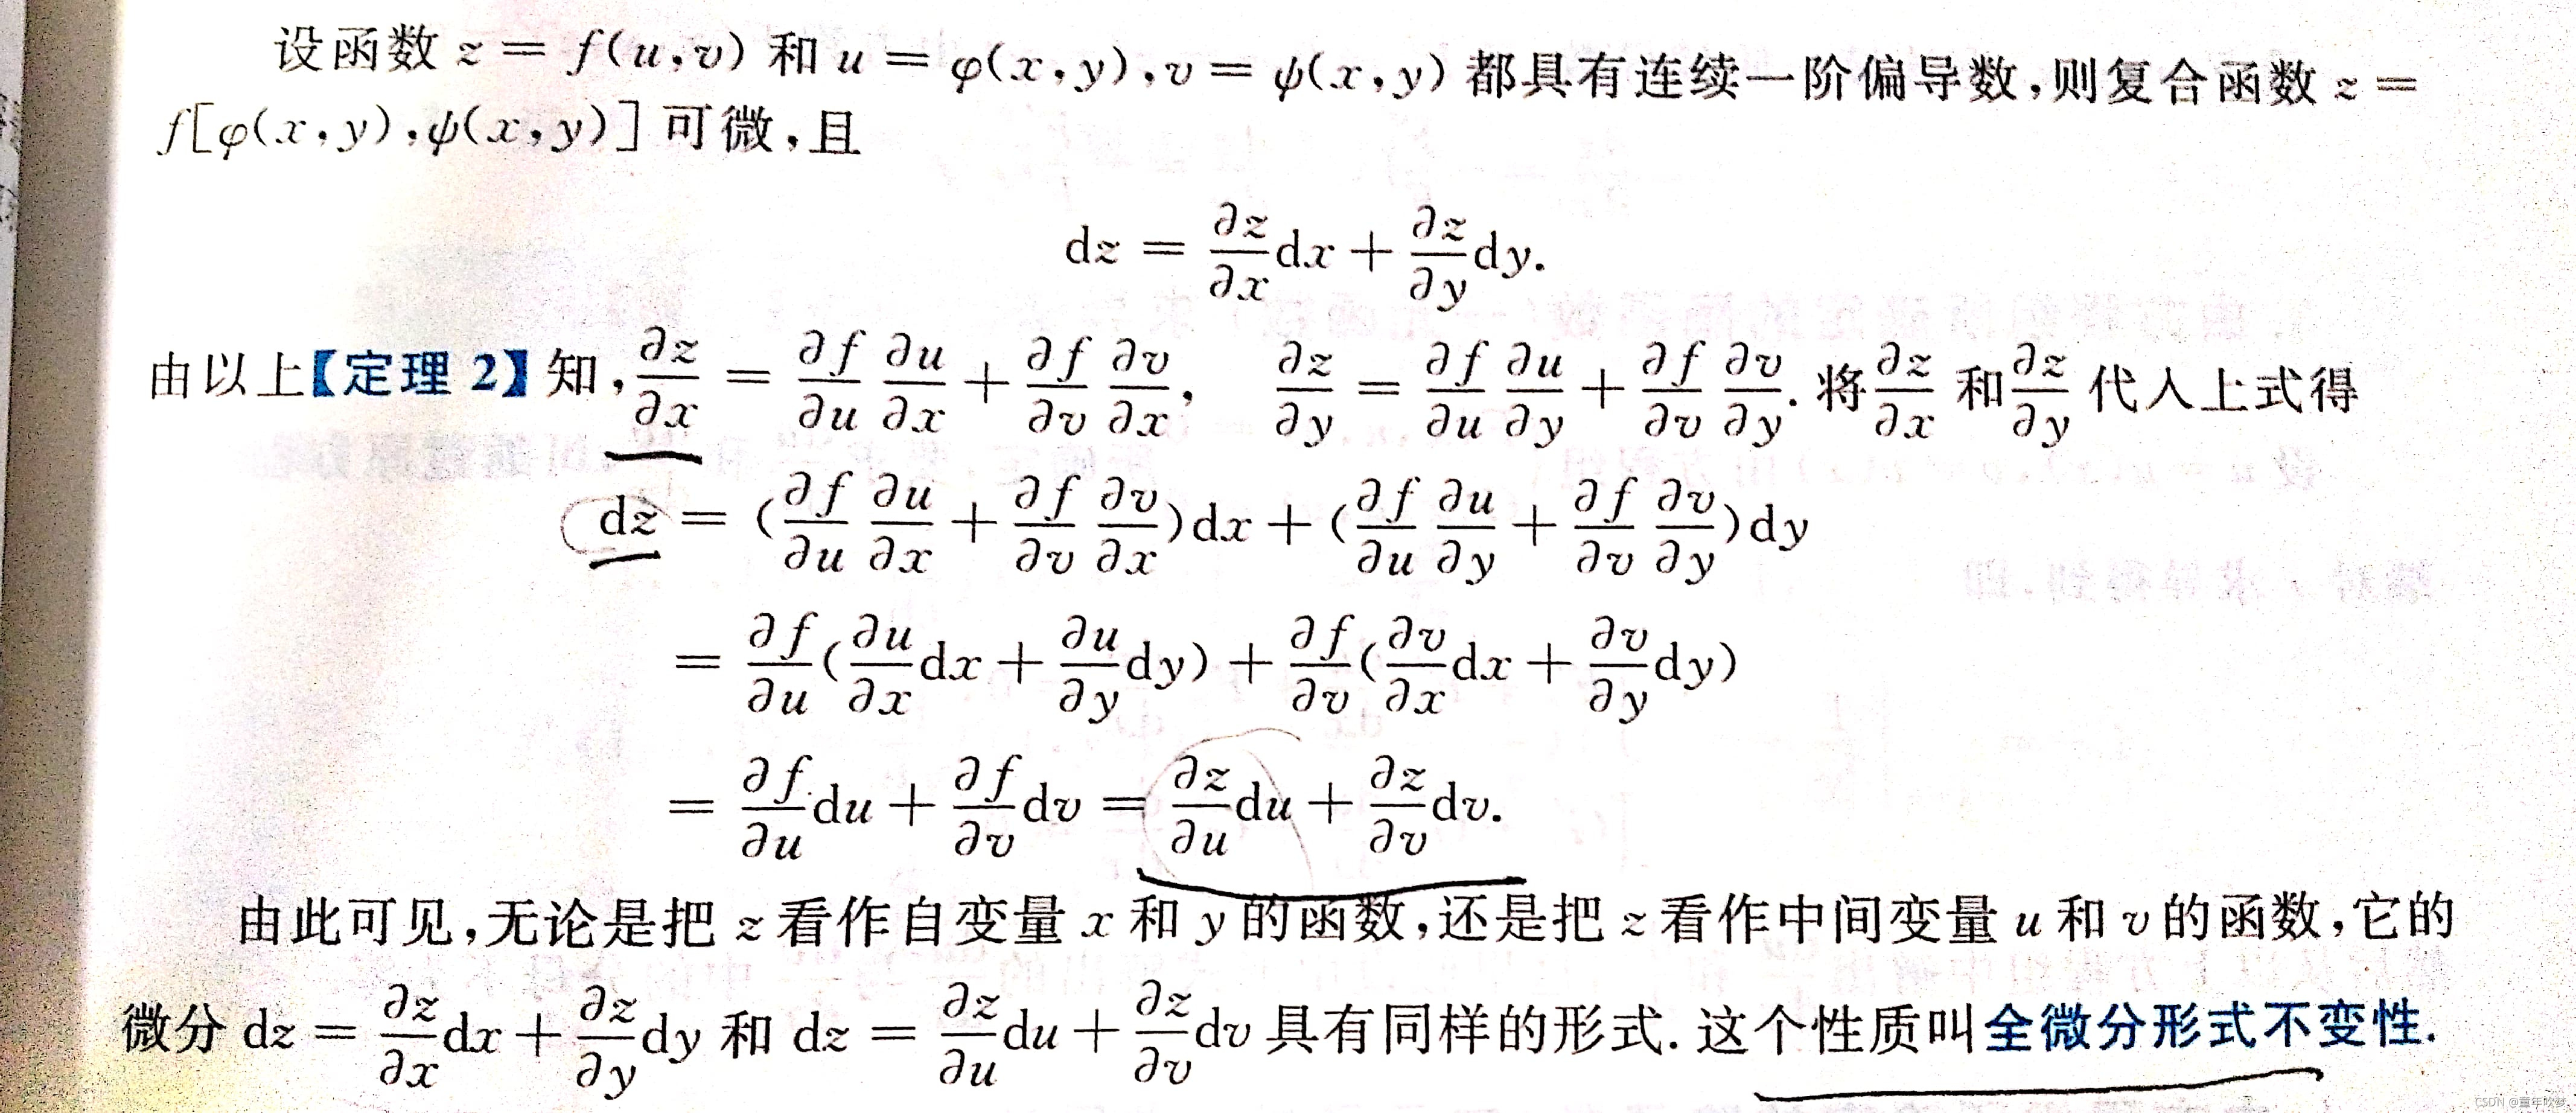 设函数 z = f(u,v) 和 u = φ(x,y),v = ψ(x,y) 都具有连续一阶偏导数,则复合函数 z =
f[φ(x,y),ψ(x,y)] 可微,且
dz = ∂z/∂x dx + ∂z/∂y dy.
由以上【定理 2】知,∂z/∂x = ∂f/∂u ∂u/∂x + ∂f/∂v ∂v/∂x, ∂z/∂y = ∂f/∂u ∂u/∂y + ∂f/∂v ∂v/∂y. 将 ∂z/∂x 和 ∂z/∂y 代入上式得
dz = (∂f/∂u ∂u/∂x + ∂f/∂v ∂v/∂x)dx + (∂f/∂u ∂u/∂y + ∂f/∂v ∂v/∂y)dy
= ∂f/∂u(∂u/∂x dx + ∂u/∂y dy) + ∂f/∂v(∂v/∂x dx + ∂v/∂y dy)
= ∂f/∂u du + ∂f/∂v dv = ∂z/∂u du + ∂z/∂v dv.
由此可见,无论是把 z 看作自变量 x 和 y 的函数,还是把 z 看作中间变量 u 和 v 的函数,它的
微分 dz = ∂z/∂x dx + ∂z/∂y dy 和 dz = ∂z/∂u du + ∂z/∂v dv 具有同样的形式. 这个性质叫全微分形式不变性.
CSDN @童年吹梦